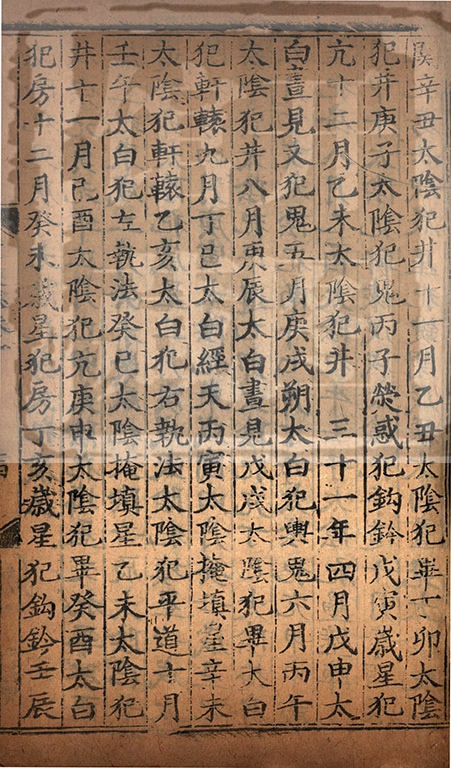 辛丑太陰犯井十一月乙丑太陰犯畢丁卯太陰
犯井庚子太陰犯鬼丙子熒惑犯鈎鈐戊寅歲星犯
亢十二月乙未太陰犯井三十一年四月戊申太
白晝見又犯鬼五月庚戌朔太白犯輿鬼六月丙午
太陰犯井八月庚辰太白晝見戊戌太陰犯畢太白
犯軒轅九月丁巳太白經天丙寅太陰掩填星辛未
太陰犯軒轅乙亥太白犯右執法太陰犯平道十月
壬午太白犯左執法癸巳太陰掩填星乙未太陰犯
井十一月己酉太陰犯亢庚申太陰犯畢癸酉太白
犯房十二月癸未歲星犯房丁亥歲星犯鈎鈐壬辰